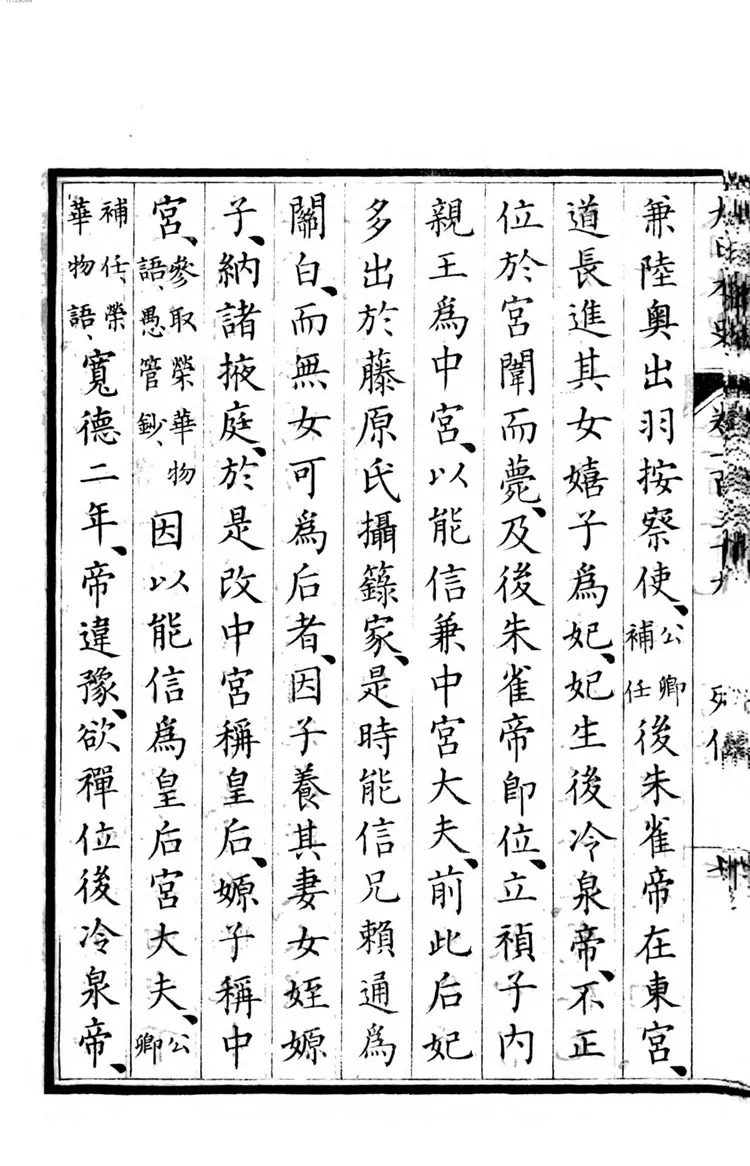 兼陸奧出羽按察使、公卿補任後朱雀帝在東宮、
道長進其女嬉子爲妃、妃生後冷泉帝、不正
位於宮闈而薨、及後朱雀帝卽位、立禎子内
親王爲中宮、以能信兼中宮大夫、前此后妃
多出於藤原氏攝籙家、是時能信兄賴通爲
關白、而無女可爲后者、因子養其妻女姪嫄
子、納諸掖庭、於是改中宮稱皇后、嫄子稱中
宮、參取榮華物語、愚管鈔、因以能信爲皇后宮大夫、公卿
補任、榮華物語、寬德二年、帝違豫、欲禪位後冷泉帝、